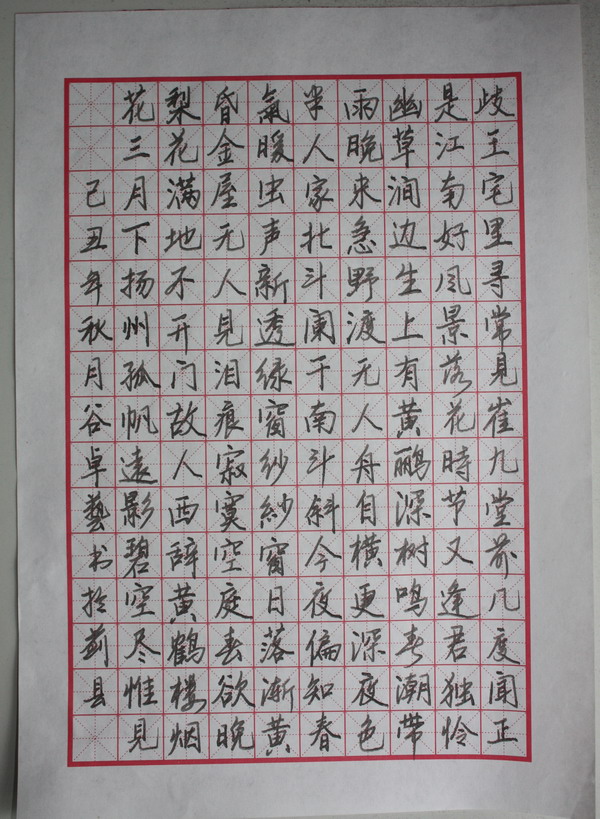 歧王宅里寻常见崔九堂前几度闻正
是江南好风景落花時节又逢君独怜
幽草涧边生上有黄鹂深树鸣春潮带
雨晚来急野渡无人舟自横更深夜色
半人家北斗阑干南斗斜今夜偏知春
氣暖虫声新透绿窗纱紗窗日落渐黄
昏金屋无人见泪痕寂寞空庭春欲晚
梨花满地不开门故人西辞黄鹤楼烟
花三月下扬州孤帆遠影碧空尽惟见
己丑年秋月谷卓藝书於蓟县